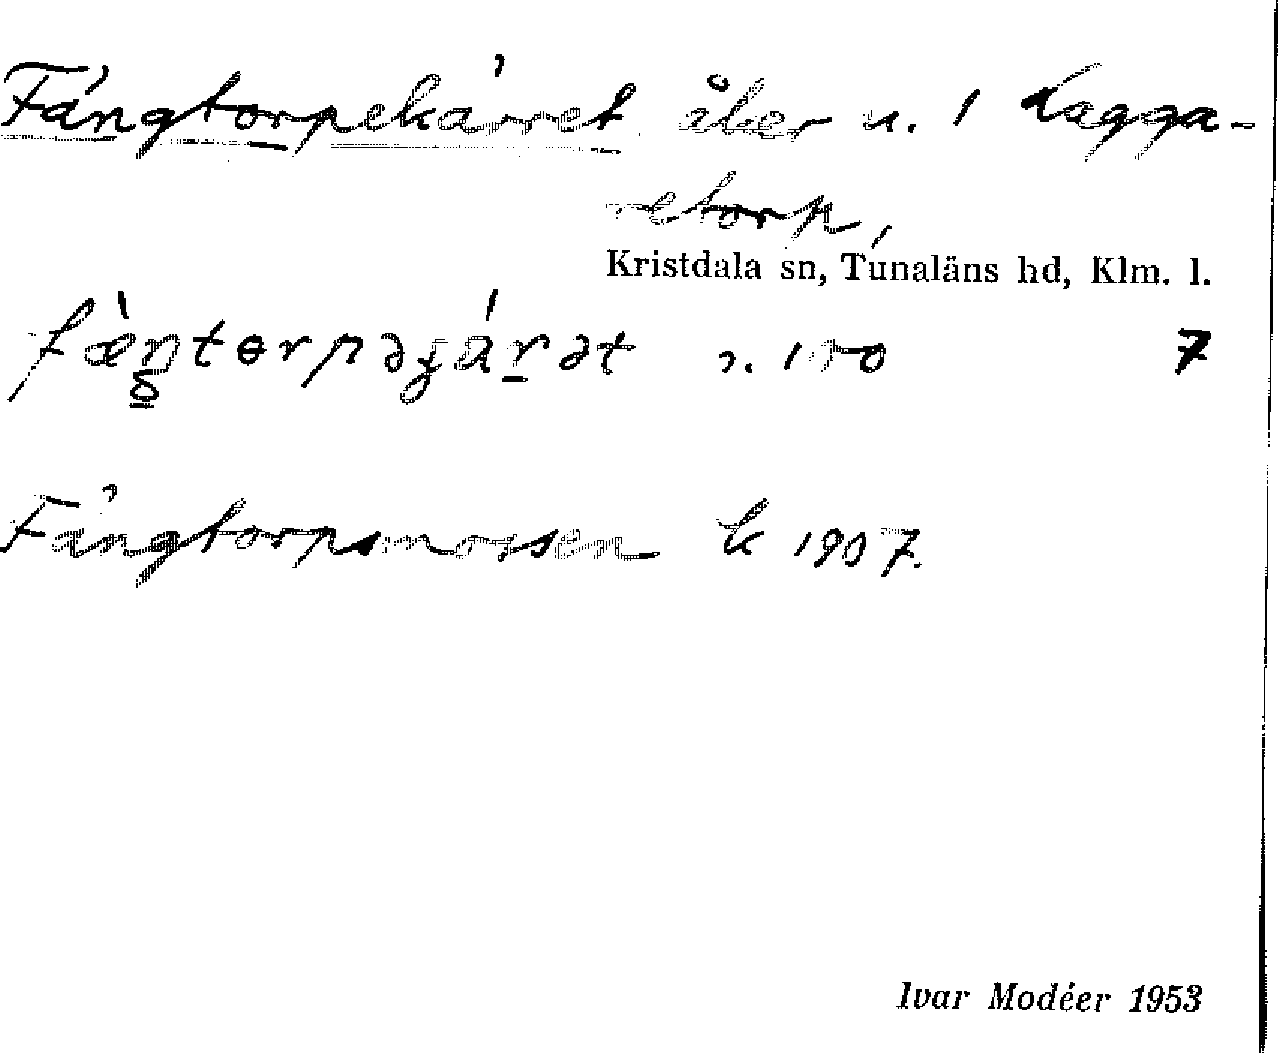 Fångtorpekärret åker u. 1 Lagga-
retorp,
Kristdala sn, Tunaläns hd, Klm. l.
fæŋtorpəɟárət 7
Fångtorpsmossen k 1907.
Ivar Modéer 1953